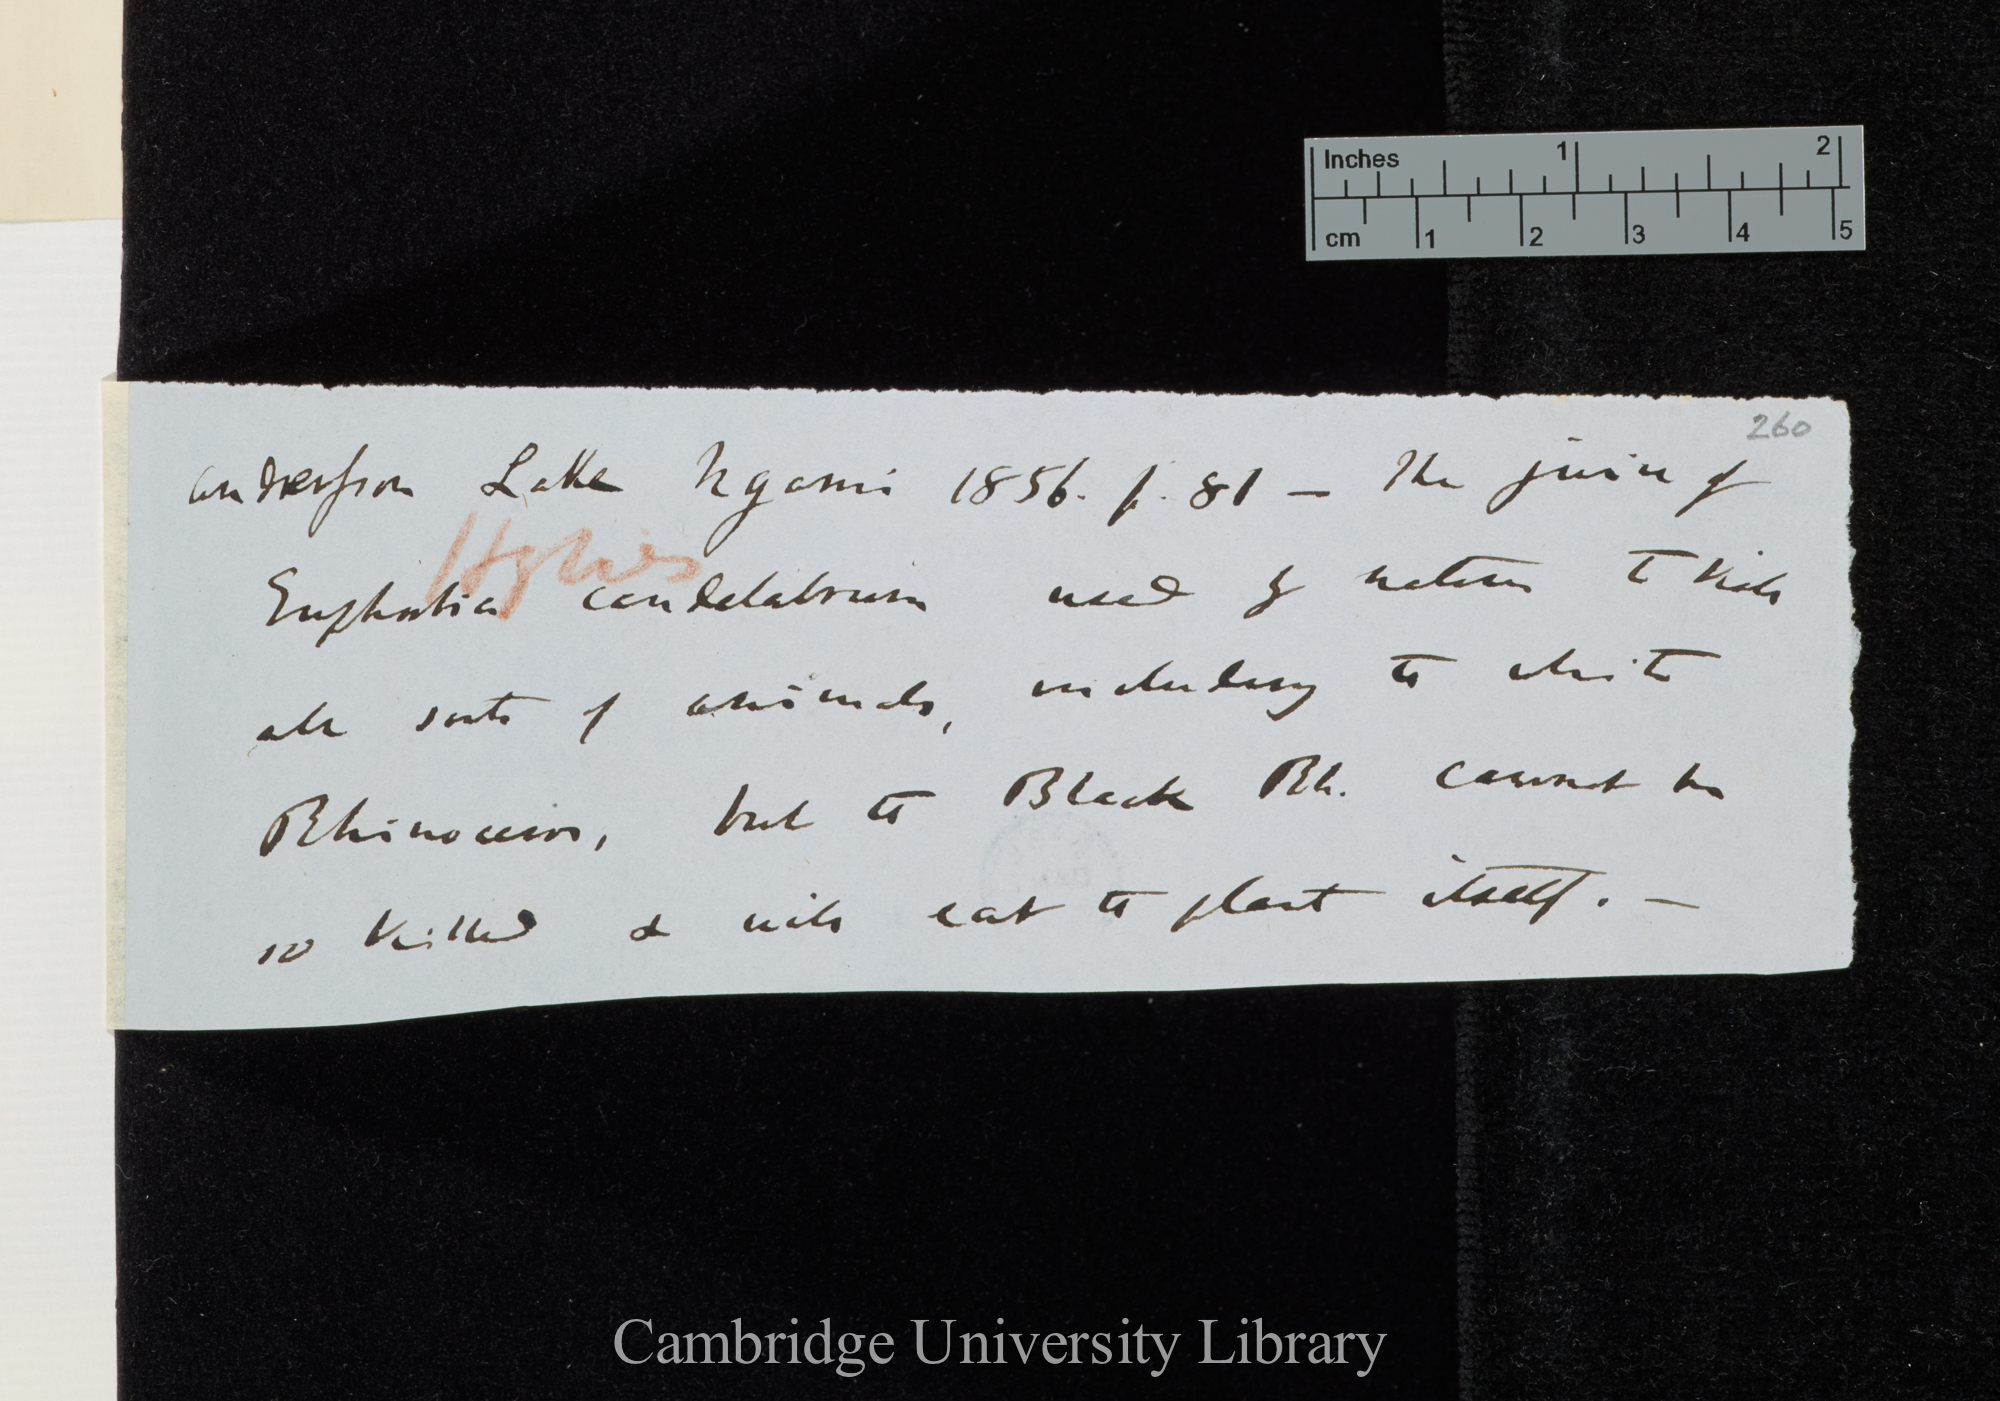 260
Andersson Lake Ngami 1856. p. 81 — The juice of
Euphorbia candelabrum used by natives to kill
all sorts of animals, including the white
Rhinoceros, but the Black Rh. cannot be
so killed & will eat the plant itself. —
Inches 1 2
cm 1 2 3 4 5
Cambridge University Library